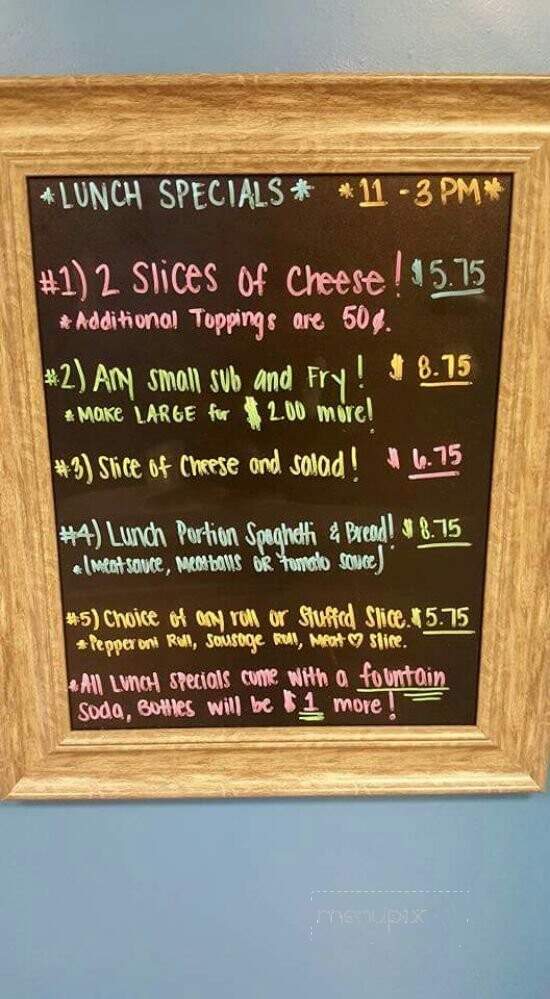 *LUNCH SPECIALS* *11 - 3 PM*
#1) 2 Slices of Cheese! $5.75
*Additional Toppings are 50¢.
#2) Any small sub and Fry! $ 8.75
*MAKE LARGE for $2.00 more!
#3) Slice of Cheese and salad! $ 6.75
#4) Lunch Portion Spaghetti & Bread! $ 8.75
*(Meatsauce, Meatballs OR Tomato sauce)
#5) Choice of any roll or Stuffed Slice. $5.75
*Pepperoni Roll, Sausage Roll, Meat♡ Slice.
*All Lunch specials come with a fountain
soda, Bottles will be $1 more!
menupix